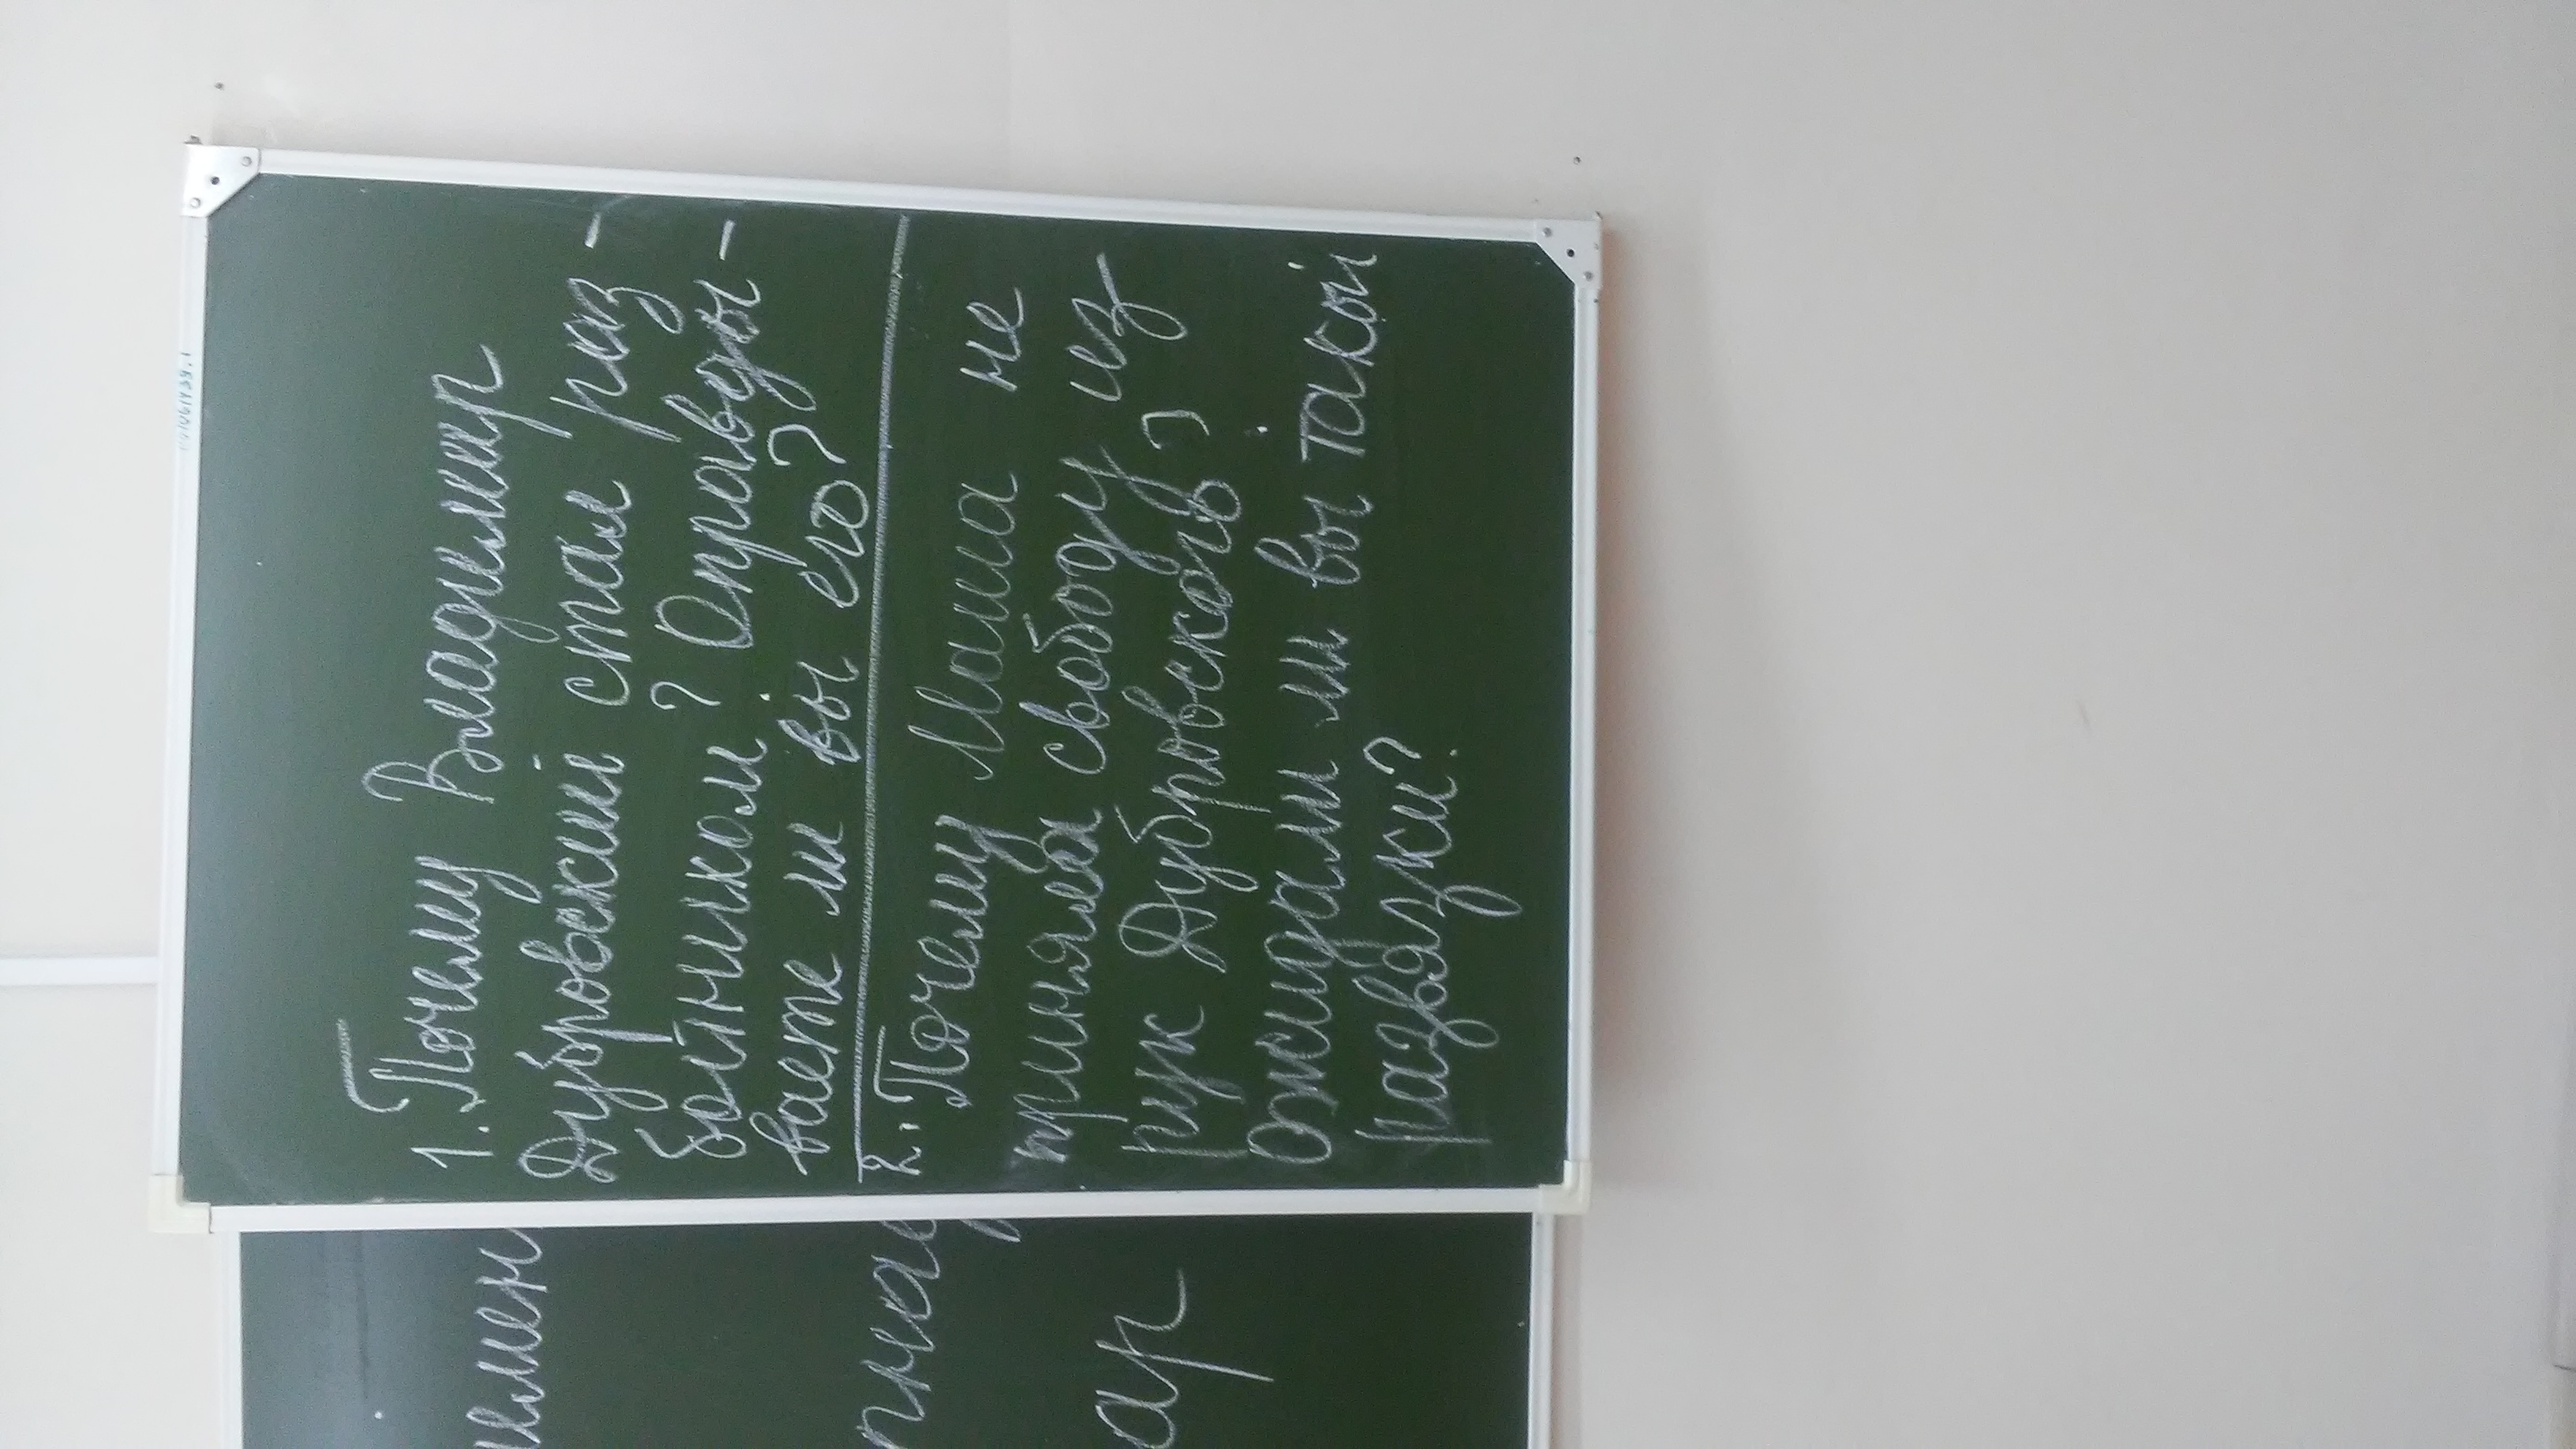 1. Почему Владимир
Дубровский стал раз-
бойником? Оправды-
ваете ли вы его?
2. Почему Маша не
приняла свободу из
рук Дубровского?
Ожидали ли вы такой
развязки?